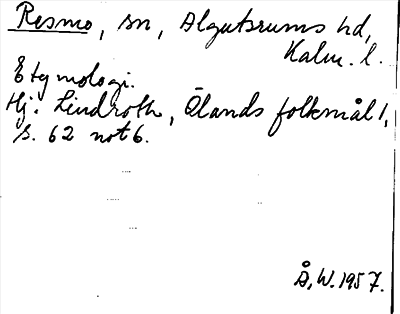 Resmo, sn, Algutsrums hd,
Kalm. l.
Etymologi.
Hj. Lindroth, Ölands folkmål 1,
s. 62 not 6.
Å.W. 1957.